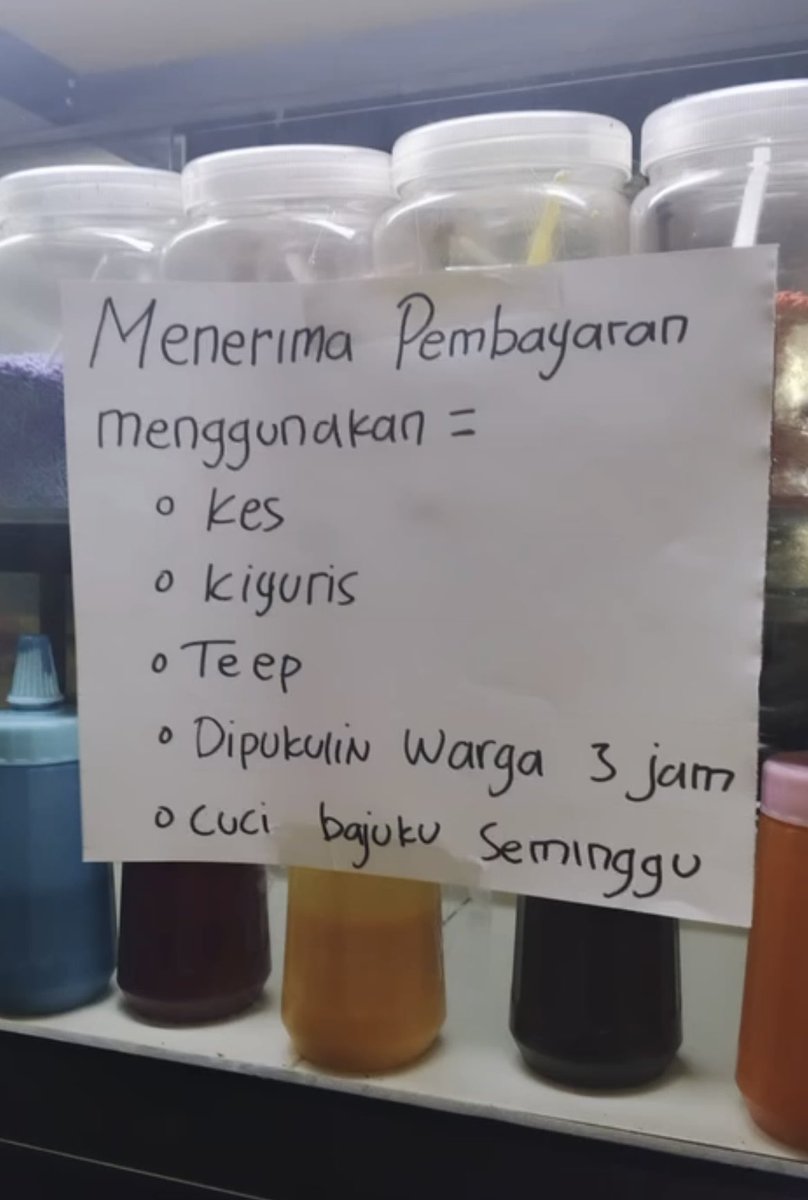 Menerima Pembayaran
menggunakan =
o kes
o kiyuris
o Teep
o Dipukulin Warga 3 jam
o cuci bajuku Seminggu